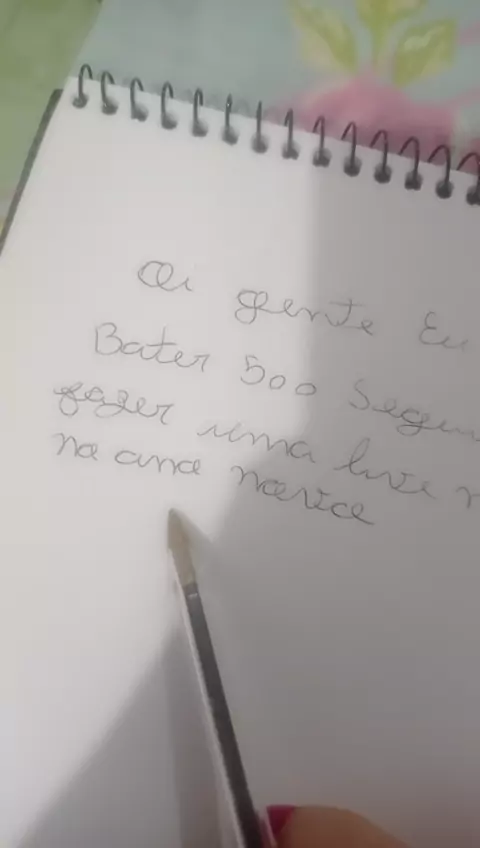 Oi gente Eu
Bater 500 Segui
fazer uma live n
na ana